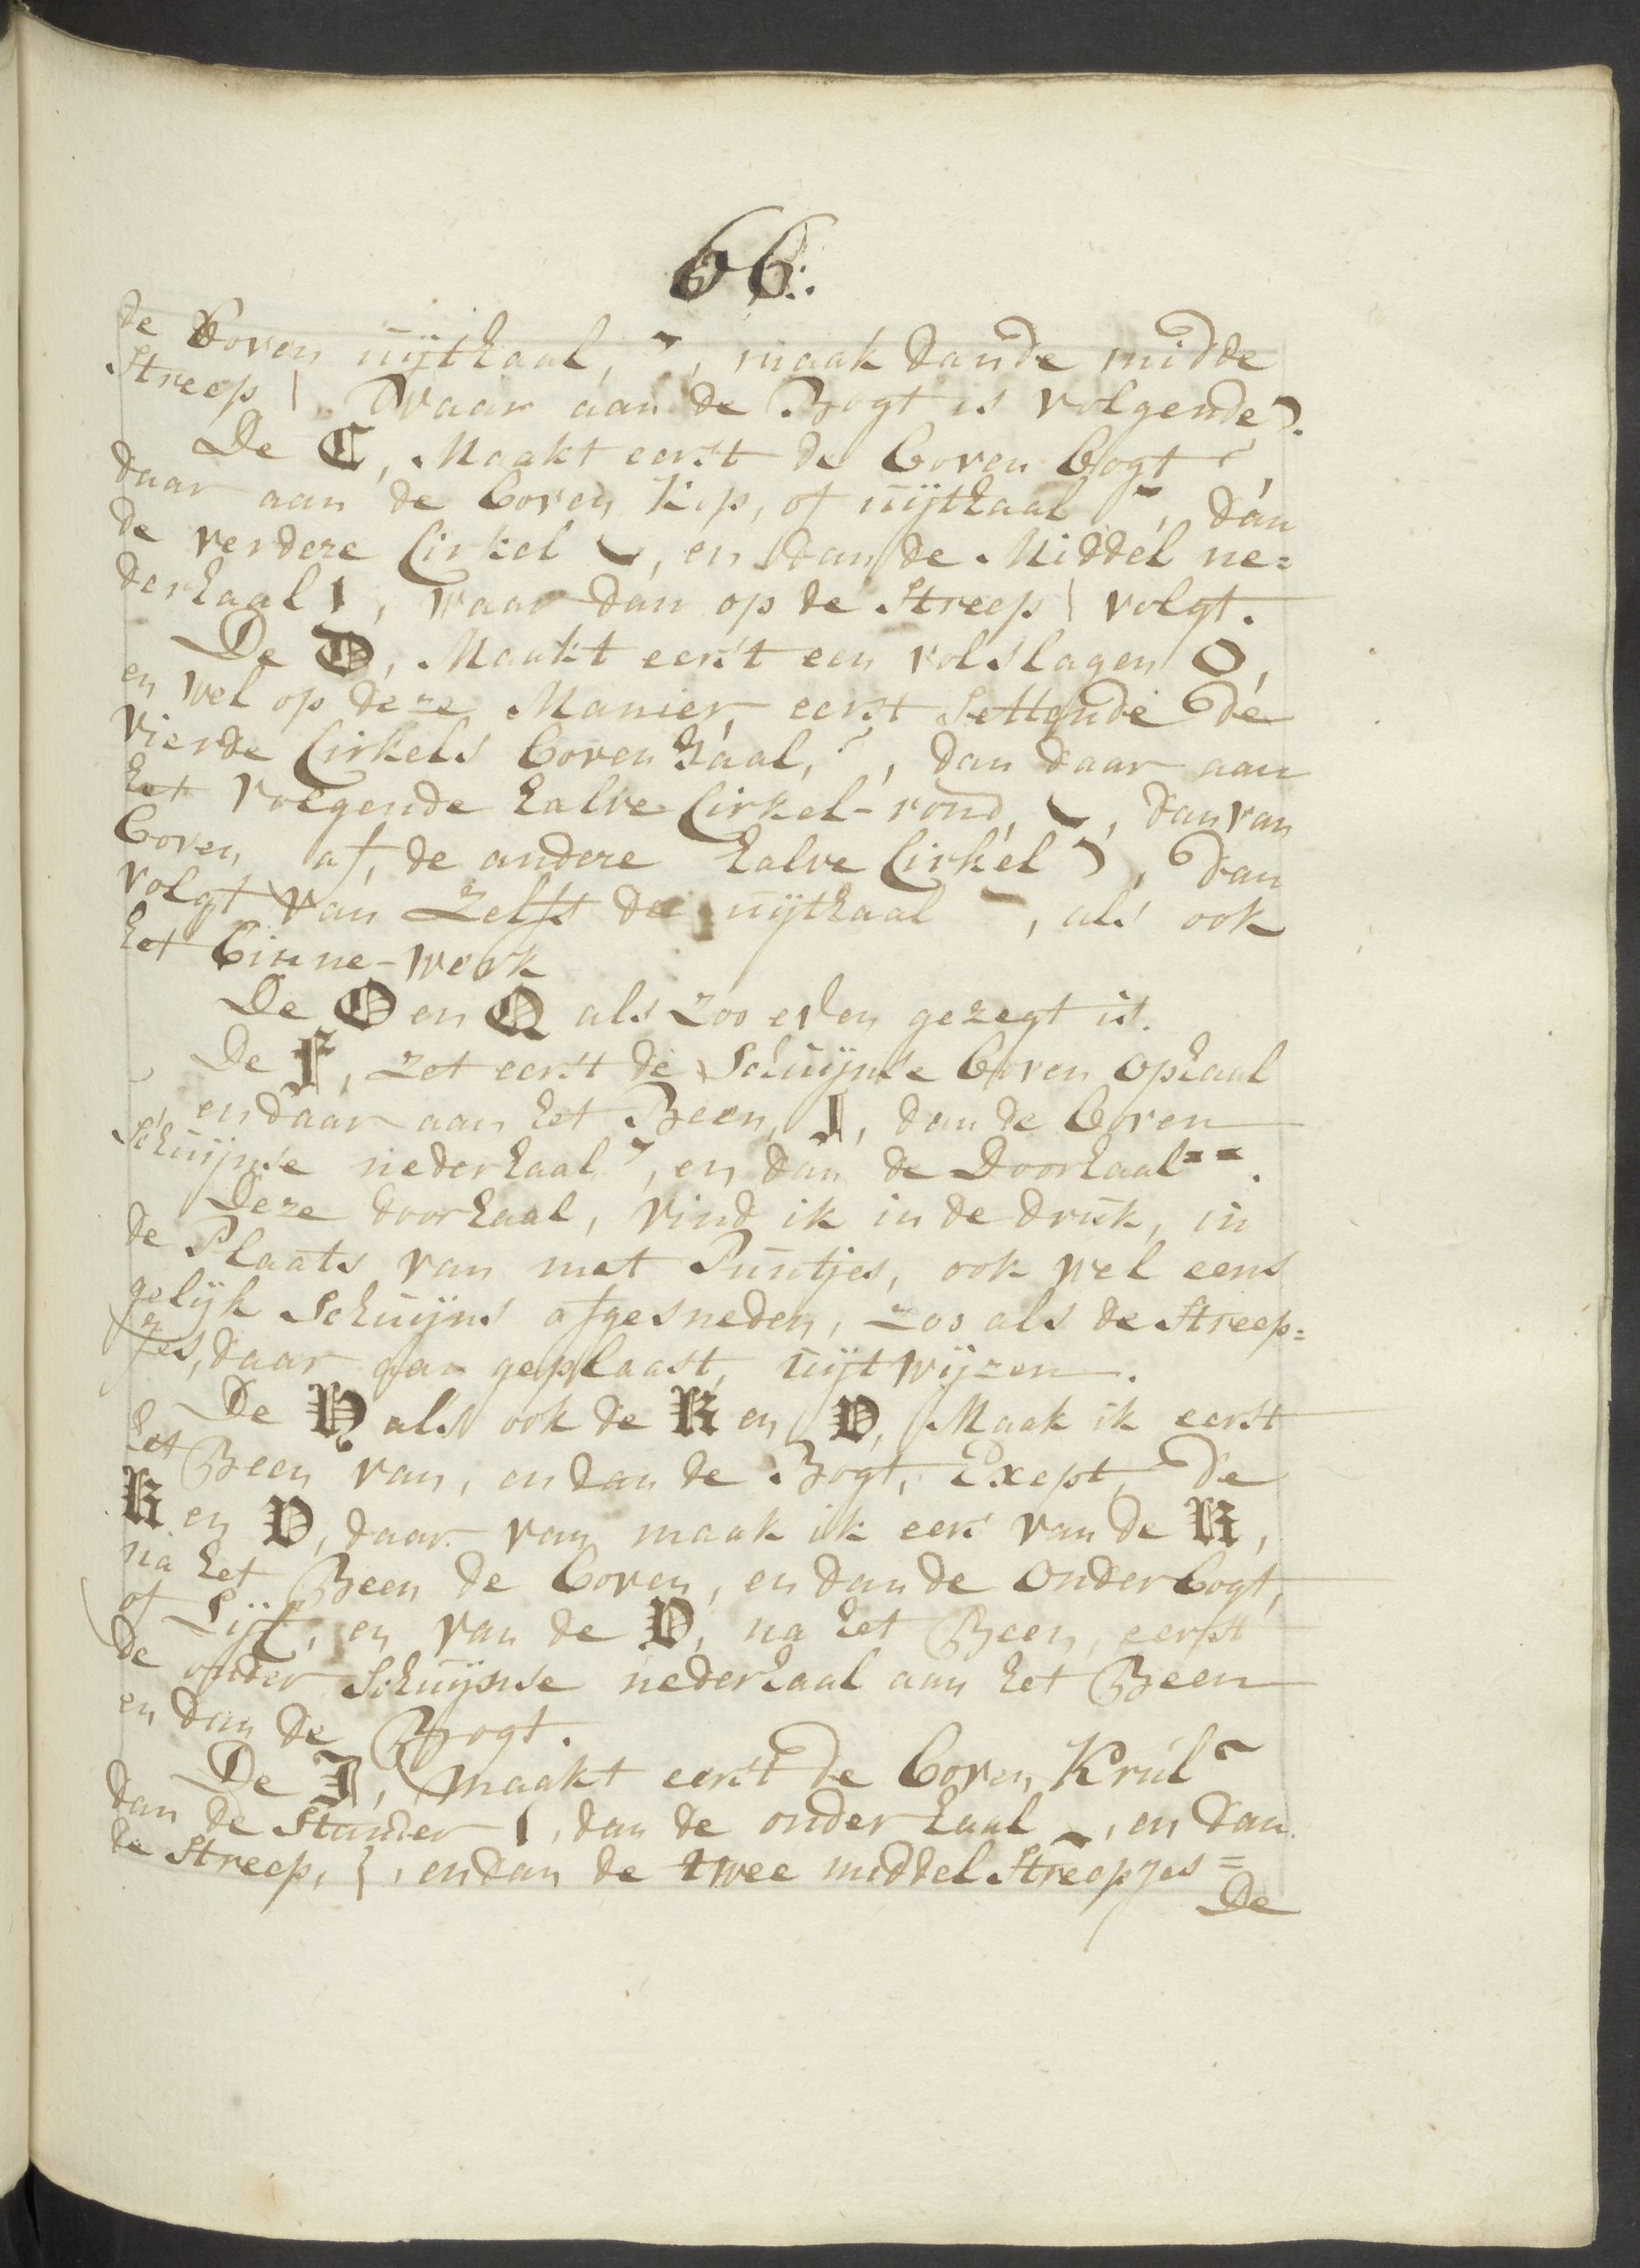 66:
de boven uijthaal, ~, maak dan de midde
Streep \ Waar aan de Bogt is volgende).
De C, Maakt eerst de boven bogt ~,
daar aan de boven Kip, of uijthaal ~, dan
de verdere Cirkel ~, en dan de Middel ne=
derhaal \, waar dan op de Streep \ volgt.
De D, Maakt eerst een volslagen O,
en wel op deze Manier, eerst Settende de
vierde Cirkels boven haal, ~, dan daar aan
het volgende halve Cirkel-rond, ~, dan van
boven af, de andere halve Cirkel ), dan
volgt van Zelfst de uijthaal ~, als ook
het binne-werk
De O en Q als zoo even gezegt is.
De F, zet eerst de Schuijnse boven ophaal
en daar aan het Been, I, dan de boven
Schuijnse nederhaal ~, en dan de Doorhaal - -.
Deze doorhaal, vind ik in de druk, in
de Plaats van met Puntjes, ook wel eens
gelijk Schuijns afgesneden, zoo als de Streep=
jes, daar aan geplaast, uijtwijzen.
De H als ook de K en V, Maak ik eerst
het Been van, en dan de Bogt, Exept, de
K en V, daar van maak ik eers van de K,
na het Been de boven, en dan de onder bogt,
of Lijf, en van de V, na het Been, eerst
de onder Schuijnse nederhaal aan het Been
en dan de Bogt.
De I, maakt eerst de boven Krul ~
dan de Stander \, dan de onder haal ~, en dan
de Streep, }, en dan de twee middel Streepjes =
De